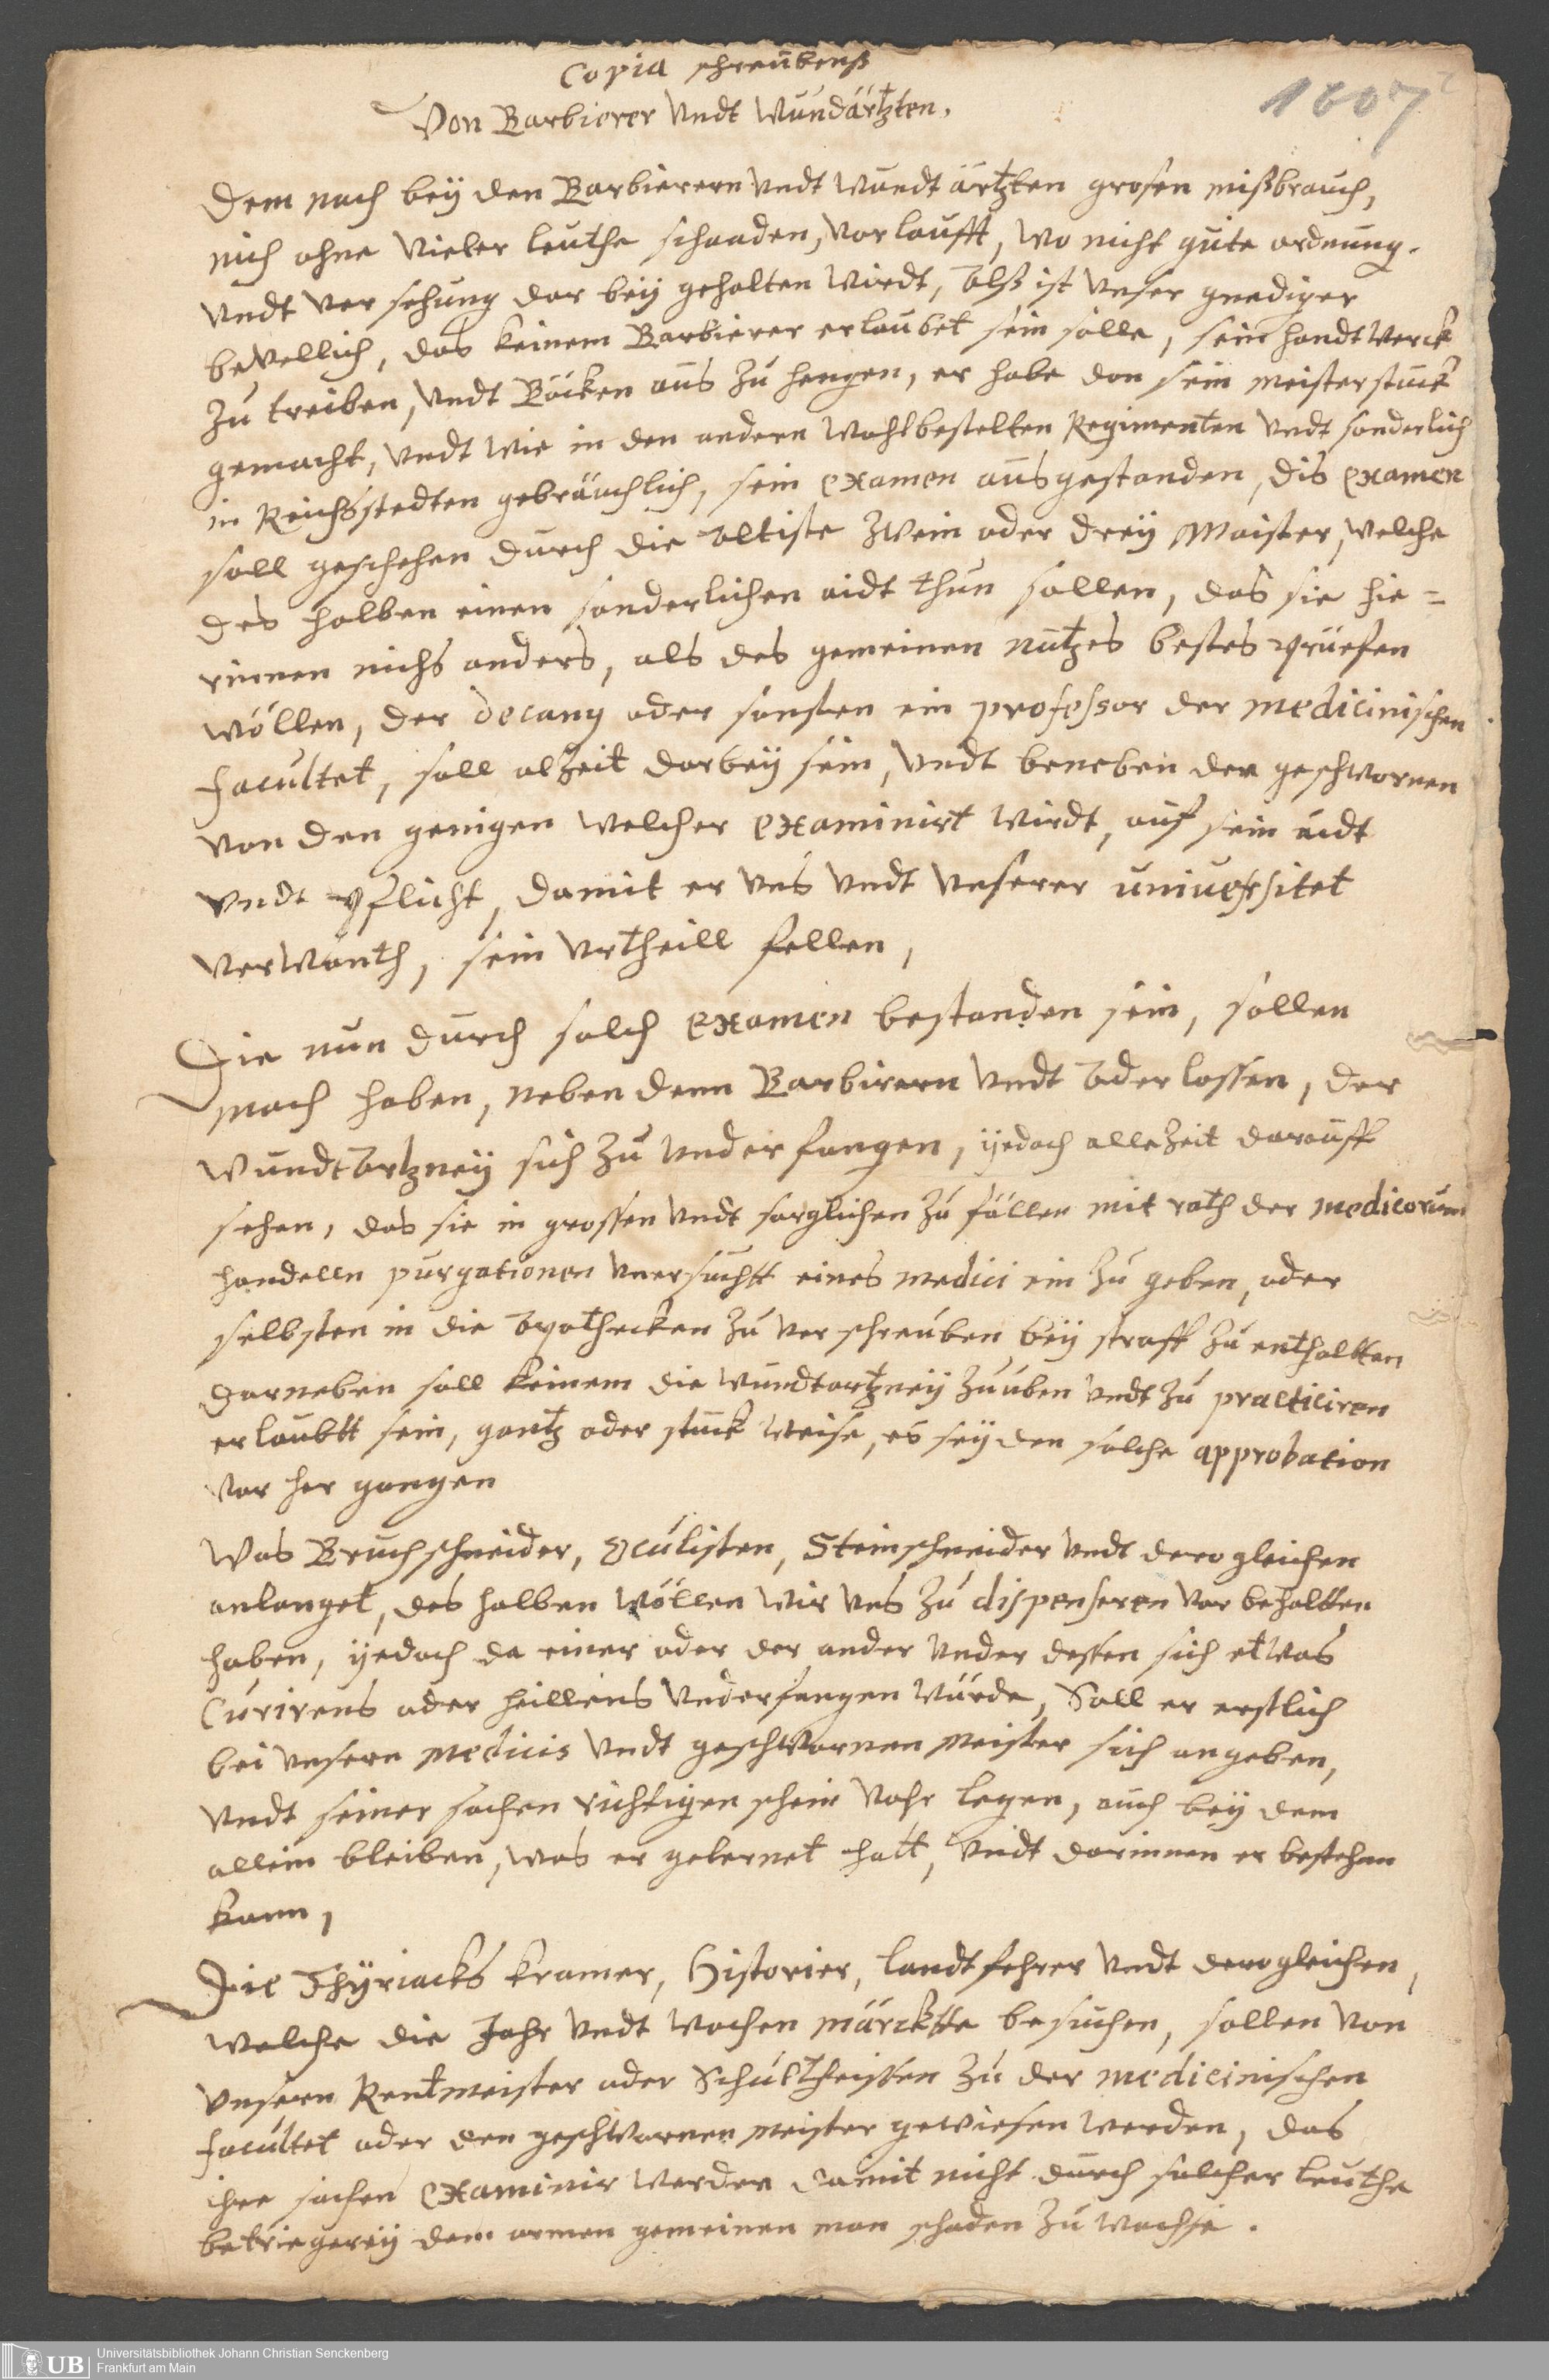 Copia schreübenß
1607
Von Barbierer Vndt Wundärtzten.
Dem nach beÿ den Barbierern Vndt Wundt ärtzten grosen mißbrauch,
nich ohne Vieler leuthe schaaden, Vorlaufft, wo nicht gute ordnung.
Vndt Versehung dar beÿ gehalten Wirdt, Alß ist Vnser gnediger
beVellich, das keinem Barbierer erlaubet sein solle, sein handtwerck
zu treiben, Vndt Böcken aus zu hengen, er habe dan sein meisterstuck
gemacht, Vndt wie in den andern Wohlbestelten Regimenten Vndt sonderlich
in Reichsstedten gebräuchlich, sein examen ausgestanden, dis examen
soll geschehen durch die Altiste zwein oder dreÿ Maister, welche
des halben einen sonderlichen aidt thun sollen, das sie hie=
rinnen nichs anders, als des gemeinen nutzes bestes prüefen
wöllen, der decany oder sonsten ein professor der medicinischen
facultet, soll alzeit darbeÿ sein, Vndt beneben der geschwornen
Von den genigen welcher examinirt wirdt, auf sein aidt
Vndt pflicht, damit er Vns Vndt Vnserer universitet
Verwanth, sein Vrtheill fellen,
Die nun durch solch examen bestanden sein, sollen
mach haben, neben dem Barbirern Vndt Aderlossen, der
WundtArtzneÿ sich zu Vnderfangen, ÿedoch allezeit darauff
sehen, das sie in grossen Vndt sorglichen zu fällen mit rath der medicorum
handelln purgationen Vnersucht eines medici ein zu geben, oder
selbsten in die Apothecken zu Verschreuben beÿ straff zu enthaltten
Darneben soll keinem die Wundtartzneÿ zuüben Vndt zu practiciren
erlaubtt sein, gantz oder stuck weise, es seÿ den solche approbation
Vor her gangen
Was Bruchschneider, Oculisten, Steinschneider Vndt dero gleichen
anlanget, des halben wöllen wir Vns zu dispenseren Vorbehaltten
haben, ÿedoch da einer oder der ander Vnder dessen sich etwas
Curirens oder heillens Vnderfangen würde, Soll er erstlich
bei Vnsern Medicis Vndt geschwornen meister sich angeben,
Vndt seiner sachen richtigen schein Vohr legen, auch beÿ dem
allein bleiben, was er gelernet hatt, Vndt darinnen er bestehen
kann,
Die Thÿriacks kramer, Historier, landtfehrer Vndt derogleichen,
welche die Jahr Vndt Wochen märcktte besuchen, sollen Von
Vnsern Rentmeister oder Schultheissen zu der medicinischen
facultet oder den geschwornen meister gewiesen werden, das
ihre sachen examinir werden damit nicht durch solcher leuthe
betriegereÿ dem armen gemeinen man schaden zu wachse.
UB Universitätsbibliothek Johann Christian Senckenberg
Frankfurt am Main